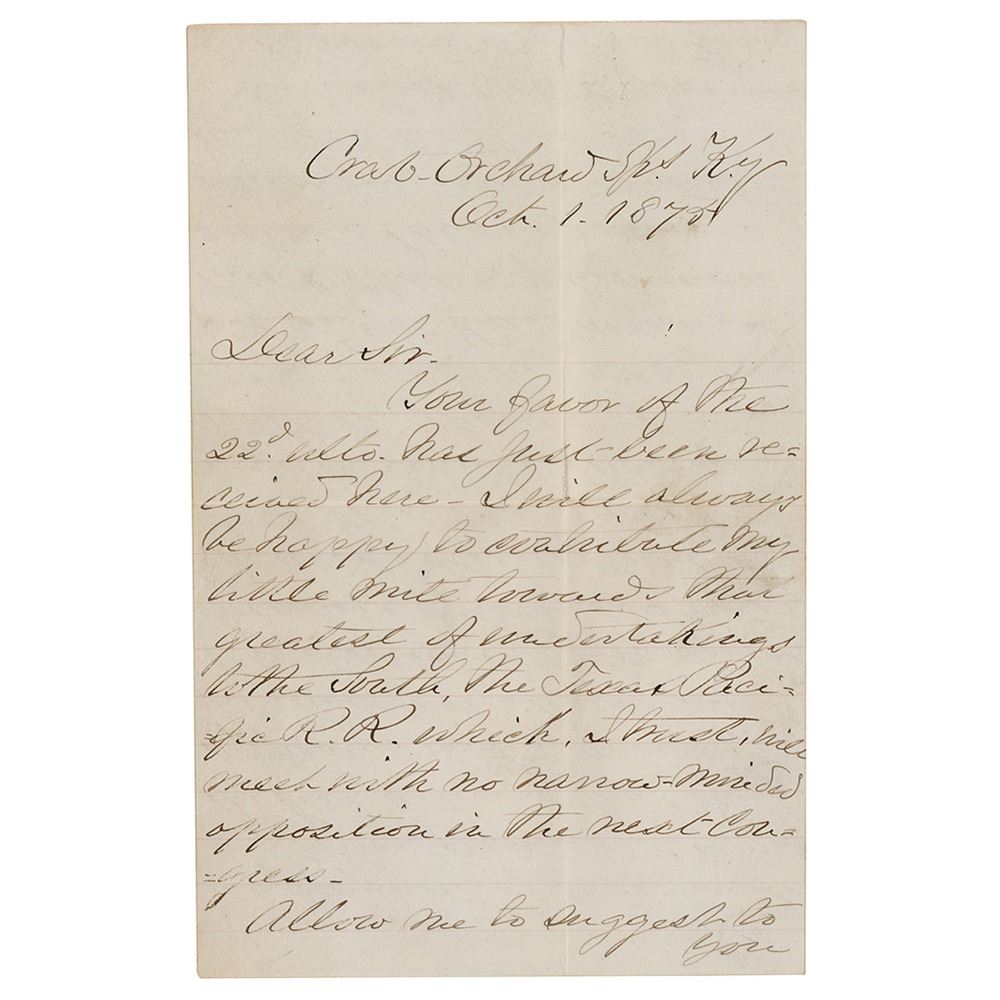 Crab-Orchard Sps. Ky
Oct. 1. 1878
Dear Sir.
Your favor of the
22d. ulto. has just been re=
ceived here - I will always
be happy to contribute my
little mite towards that
greatest of undertakings
to the South, the Texas Paci-
=fic R.R. which, I trust, will
meet with no narrow-minded
opposition in the next Con=
=gress -
Allow me to suggest to
you